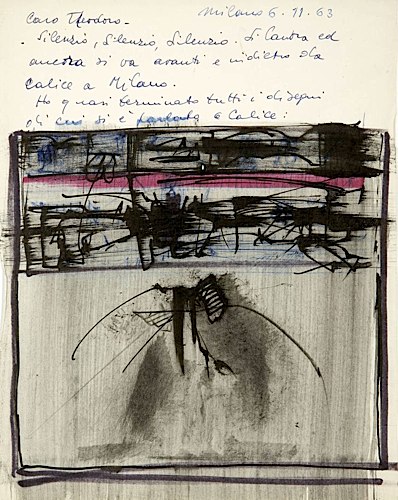 Milano 6.11.63
Caro Theodoro.
. Silenzio, Silenzio, Silenzio. Si lavora ed
ancora si va avanti e indietro da
calice a Milano.
Ho quasi terminato tutti i disegni
di cui si è parlato a Calice: